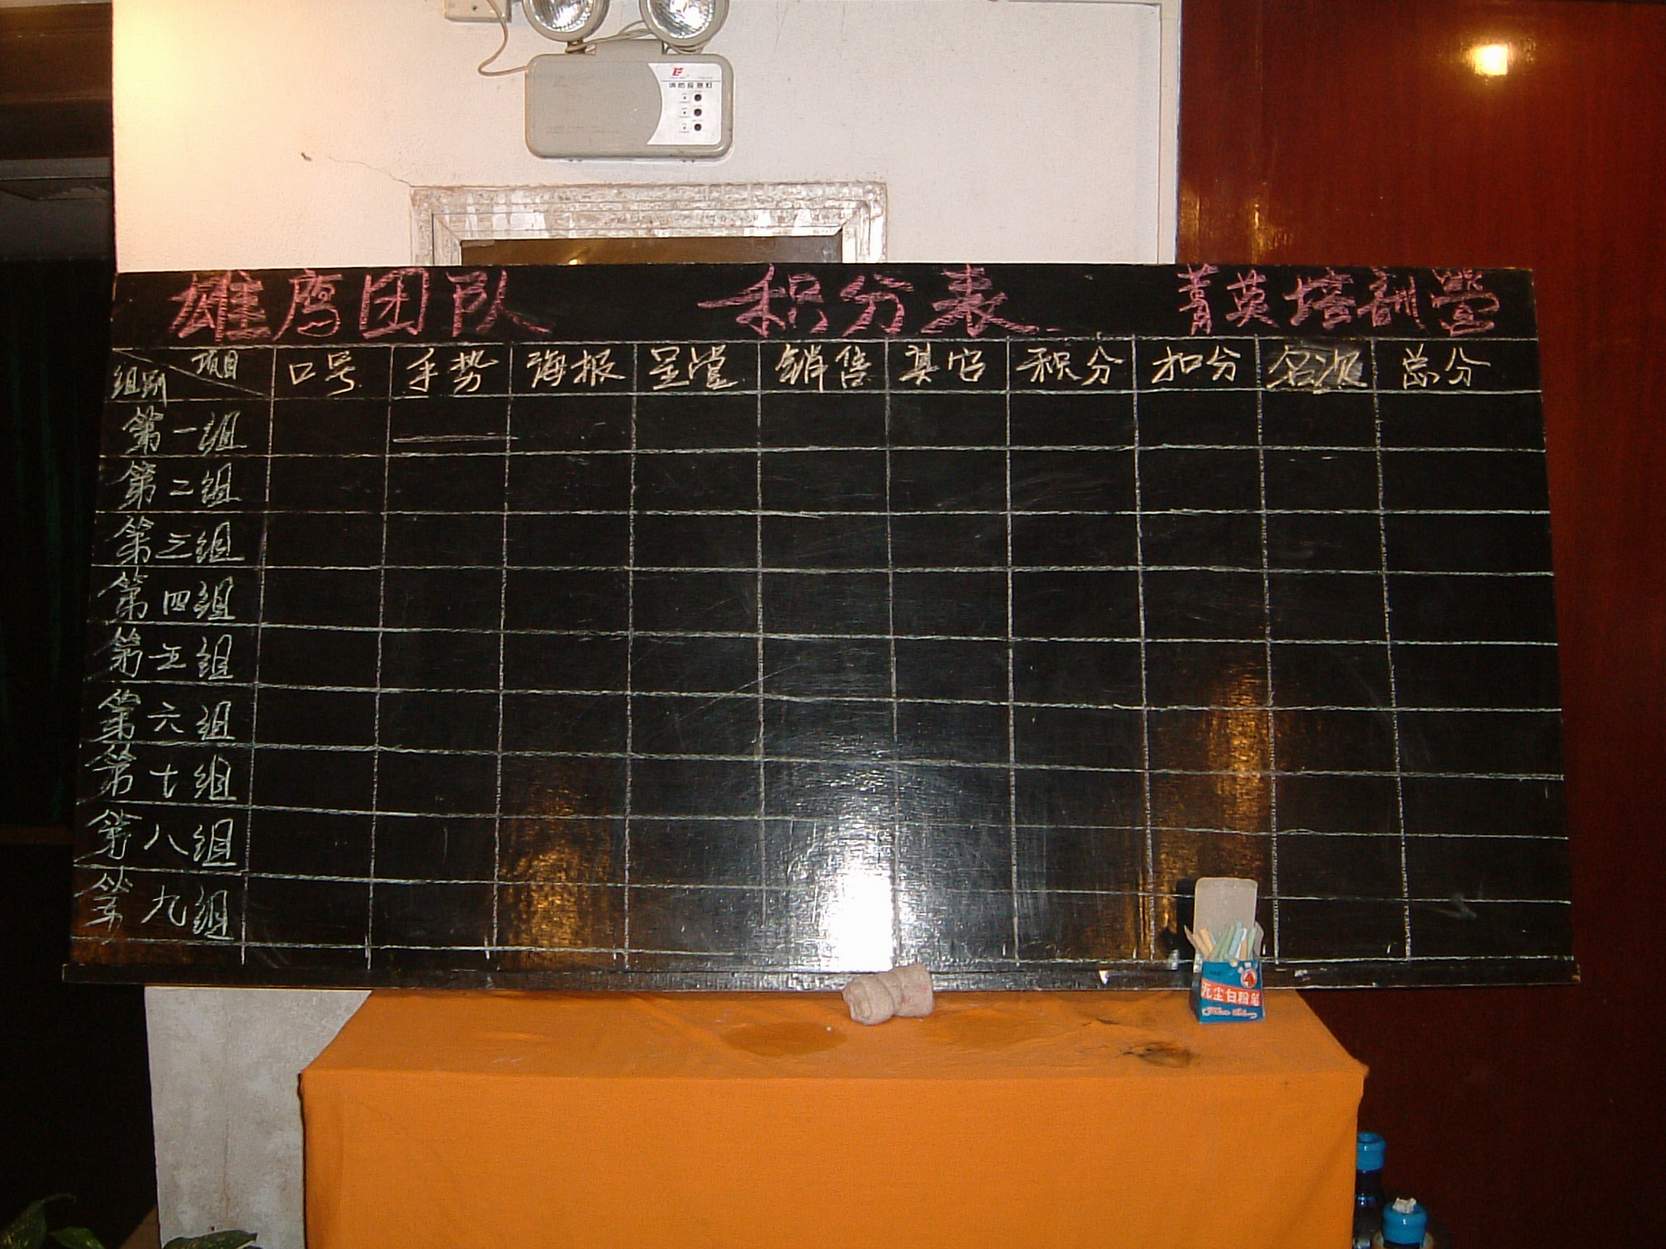 消防应急灯
雄鹰团队 积分表 菁英培训营
项目 口号 手势 海报 呈堂 销售 其它 积分 扣分 名次 总分
组别
第一组
第二组
第三组
第四组
第五组
第六组
第七组
第八组
第九组
无尘白粉笔